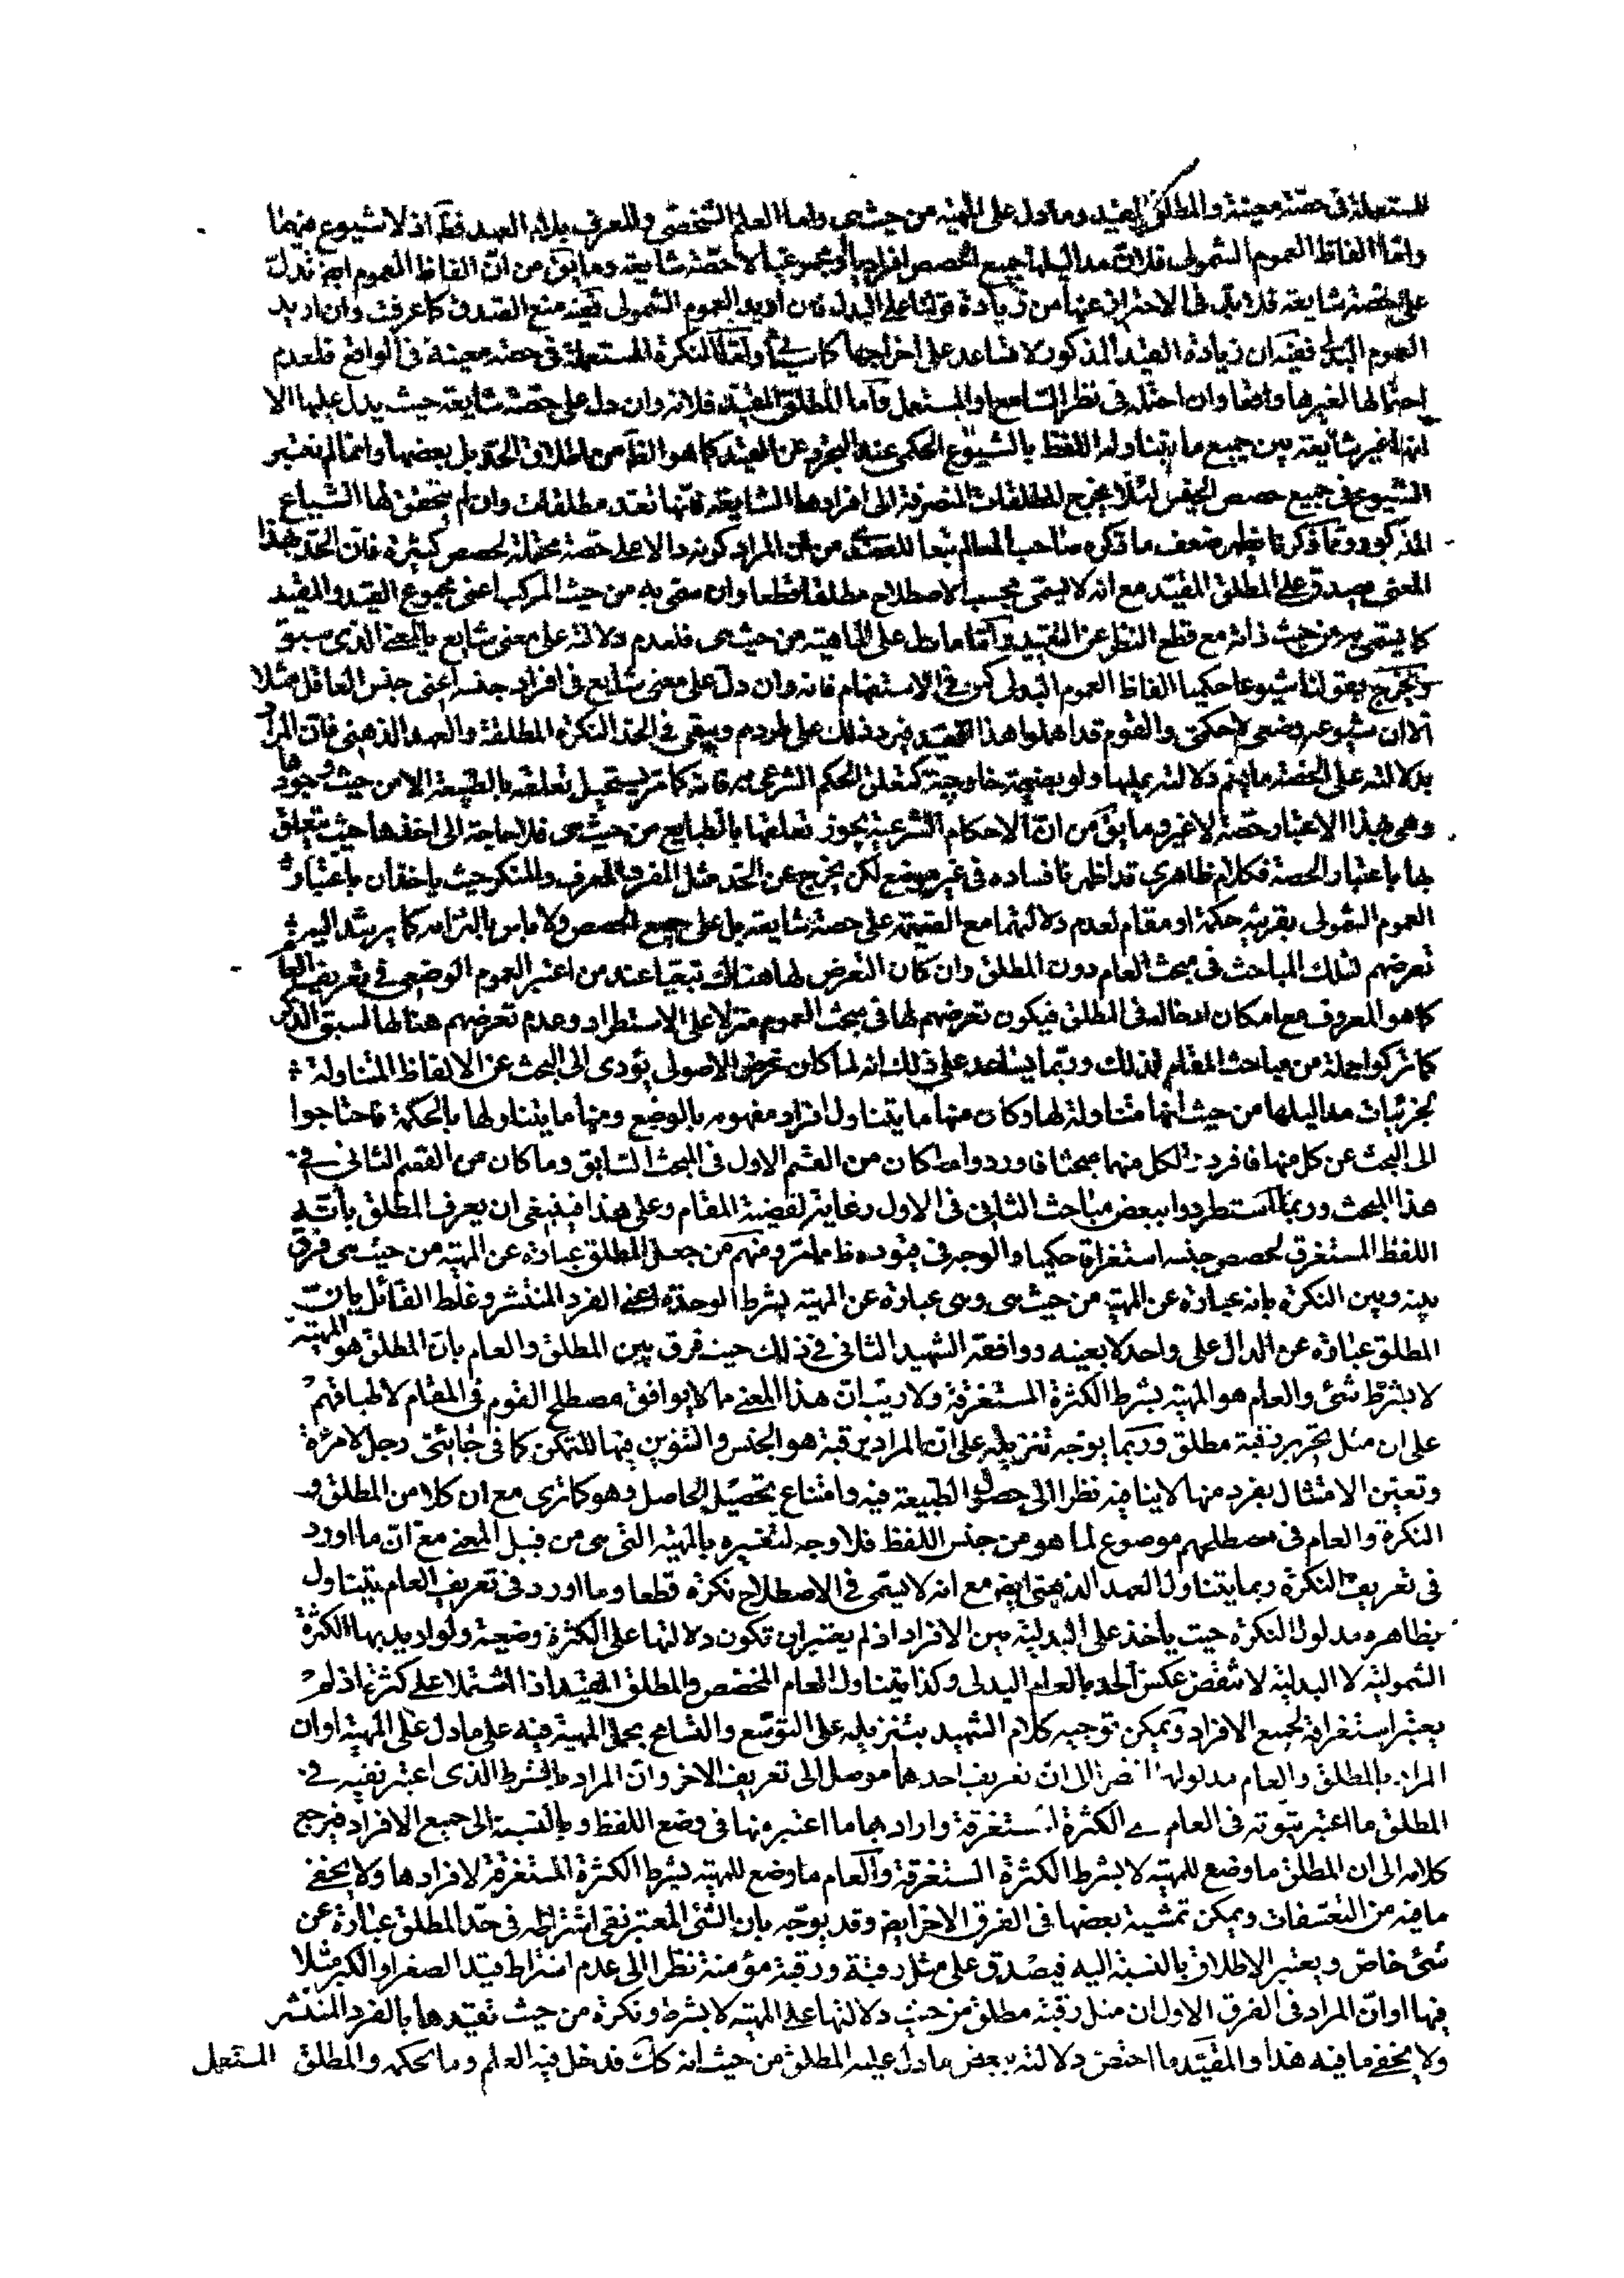 المستعملة في حصّة معينة والمطلق المقيد وما دل على المهيّة من حيث هى واما العلم الشخصى والمعرف بلام العهد فظَ اذ لا شيوع فيهما
وامّا الفاظ العموم الشمولى فلانّ مداليلها جميع الحصص افراديا او مجموعيا لا حصّة شايعة وما يقَ من انّ الفاظ العموم ايضَ تدلّ
على حصّة شايعة فلا بدّ في الاحتراز عنها من زيادة قولنا على البدل فان اريد العموم الشمولى ففيه منع الصّدق كما عرفت وان اريد
العموم البدلى ففيه ان زيادة القيد المذكور لا تساعد على اخراجها كما سيأتى وامّا النكرة المستعملة في حصّة معينة في الواقع فلعدم
احتمالها لغيرها واقعا وان احتمله في نظر السّامع او المستعمل وامّا المطلق المقيّد فلانه وان دل على حصّة شايعة حيث يدل عليها الا
انها غير شايعة بين جميع ما يتناوله اللفظ بالشيوع الحكمى عند التجرد عن القيد كما هو الظَ من اطلاق الحدّ بل بعضها وانما لم نعتبر
الشيوع في جميع حصص الجنس لئلّا يخرج المطلقات المنصرفة الى افرادها الشايعة فانّها تعد مطلقات وان لم يتحقق لها الشياع
المذكور وممّا ذكرنا يظهر ضعف ما ذكره صاحب المعالم تبعا للعضدى من انّ المراد كونه دالا على حصّة محتملة لحصص كثيرة فانّ الحدّ بهذا
المعنى يصدق على المطلق المقيّد مع انه لا يسمّى بحسب الاصطلاح مطلقا قطعا وان سمّى به من حيث المركب اعنى مجموع القيد والمقيد
كما يسمّى به من حيث ذاته مع قطع النظر عن التقييد وامّا ما دل على الماهيّة من حيث هى فلعدم دلالته على معنى شايع بالمعنى الذى سبق
ويخرج بقولنا شيوعا حكميا الفاظ العموم البدلى كمن في الاستفهام فانه وان دلّ على معنى شايع في افراد جنسه اعنى جنس العاقل مثلا
الا ان شيوعه وضعى لا حكمى والقوم قد اهملوا هذا القيد فيرد ذلك على طردهم ويبقى في الحدّ النكرة المطلقة والعهد الذهنى فانّ المراد
بدلالته على الحصّة ما يعم دلالته عليها ولو بضميمة خارجيّة كتعلق الحكم الشرعى به فانه كما مرّ يستحيل تعلقه بالطبيعة الا من حيث وجودها
وهى بهذا الاعتبار حصّة لا غير وما يقَ من انّ الاحكام الشّرعيّة يجوز تعلقها بالطبايع من حيث هى فلا حاجة الى اخذها حيث يتعلق
بها باعتبار الحصة فكلام ظاهرى قد اظهرنا فساده في غير موضع لكن يخرج عن الحدّ مثل المفرد المعرف والمنكر حيث ياخذان باعتبار
العموم الشمولى بقرينة حكمة او مقام لعدم دلالتهما مع الضميمة على حصة شايعة بل على جميع الحصص ولا باس بالتزامه كما يرشد اليه
تعرضهم لتلك المباحث في مبحث العام دون المطلق وان كان التعرض لها هناك تبعيّا عند من اعتبر العموم الوضعى في تعريف العامّ
كما هو المعروف مع امكان ادخاله في المطلق فيكون تعرضهم لها في مبحث العموم منزلا على الاستطراد وعدم تعرضهم هنا لها لسبق الذكر
كما تركوا جملة من مباحث المقام لذلك وربّما يساعد على ذلك انه لما كان غرض الاصولى يؤدى الى البحث عن الالفاظ المتناولة
لجزئيات مداليلها من حيث انها متناولة لها وكان منها ما يتناول افراد مفهومه بالوضع ومنها ما يتناولها بالحكمة فاحتاجوا
الى البحث عن كل منها فافردوا لكل منهما مبحثا فاوردوا ما كان من القسم الاول في المبحث السّابق وما كان من القسم الثانى في
هذا المبحث وربما استطردوا ببعض مباحث الثانى في الاول رعاية لقضية المقام وعلى هذا فينبغى ان يعرف المطلق بأنّه
اللفظ المستغرق لحصص جنسه استغراقا حكيما والوجه في قيوده ظَ مما مرّ ومنهم من جعل المطلق عبارة عن المهيّة من حيث هى وفرق
بينه وبين النكرة بانه عبارة عن المهيّة من حيث هى وهى عبارة عن المهية بشرط الوحدة اعنى الفرد المنتشر وغلط القائل بانّ
المطلق عبارة عن الدال على واحد لا بعينه ووافقه الشهيد الثانى في ذلك حيث فرق بين المطلق والعام بانّ المطلق هو المهيّة
لا بشرط شئ والعام هو المهيّة بشرط الكثرة المستغرقة ولا ريب انّ هذا المعنى ما لا يوافق مصطلح القوم في المقام لاطباقهم
على ان مثل تحرير رقبة مطلق وربما يوجّه تنزيله على انّ المراد برقبة هو الجنس والتنوين فيها للتمكن كما في جائنى رجل لا امرئة
وتعيّن الامتثال بفرد منها لا ينافيه نظرا الى حصول الطبيعة فيه وامتناع تحصيل الحاصل وهو كما ترى مع ان كلا من المطلق و
النكرة والعام في مصطلحهم موضوع لما هو من جنس اللفظ فلا وجه لتفسيره بالمهيّة التى هى من قبيل المعنى مع انّ ما اورد
في تعريف النكرة ربما يتناول العهد الذهنى ايضَ مع انه لا يسمّى في الاصطلاح نكرة قطعا وما اورد في تعريف العام يتناول
بظاهره مدلول النكرة حيت يأخذ على البدلية بين الافراد اذ لم يعتبر ان تكون دلالتها على الكثرة وضعية ولو اريد بها الكثرة
الشمولية لا البدلية لانتقض عكس الحد بالعام البدلى وكذا يتناول العام المخصص والمطلق المقيد اذا اشتملا على كثرة اذ لم
يعتبر استغراقه لجميع الافراد ويمكن توجيه كلام الشهيد بتنزيله على التوسّع والتسامح بحمل المهية فيه على ما دل على المهيّة او ان
المراد بالمطلق والعام مدلولهما نظرا الى انّ تعريف احدهما موصل الى تعريف الاخر وانّ المراد بالشرط الذى اعتبر نفيه في
المطلق ما اعتبر ثبوته في العام من الكثرة المستغرقة واراد بهما ما اعتبر منها في وضع اللفظ وبالنسبة الى جميع الافراد فيرجع
كلامه الى ان المطلق ما وضع للمهيّه لا بشرط الكثرة المستغرقة والعام ما وضع للمهيّه بشرط الكثرة المستغرقة لافرادها ولا يخفى
ما فيه من التعسّفات ويمكن تمشية بعضها في الفرق الاخر ايضَ وقد يوجّه بان الشئ المعتبر نفى اشتراطه في حدّ المطلق عبارة عن
شئ خاصّ ويعتبر الاطلاق بالنسبة اليه فيصدق على مثل رقبة ورقبة مؤمنة نظرا الى عدم اشتراط قيد الصغر او الكبر مثلا
فيها او انّ المراد في الفرق الاول ان مثل رقبة مطلق من حيث دلالتها على المهيّة لا بشرط ونكرة من حيث تقيدها بالفرد المنتشر
ولا يخفى ما فيه هذا والمقيّد ما اختص دلالته ببعض ما دل عليه المطلق من حيث انه كك فدخل فيه العلم وما بحكمه والمطلق المستعمل